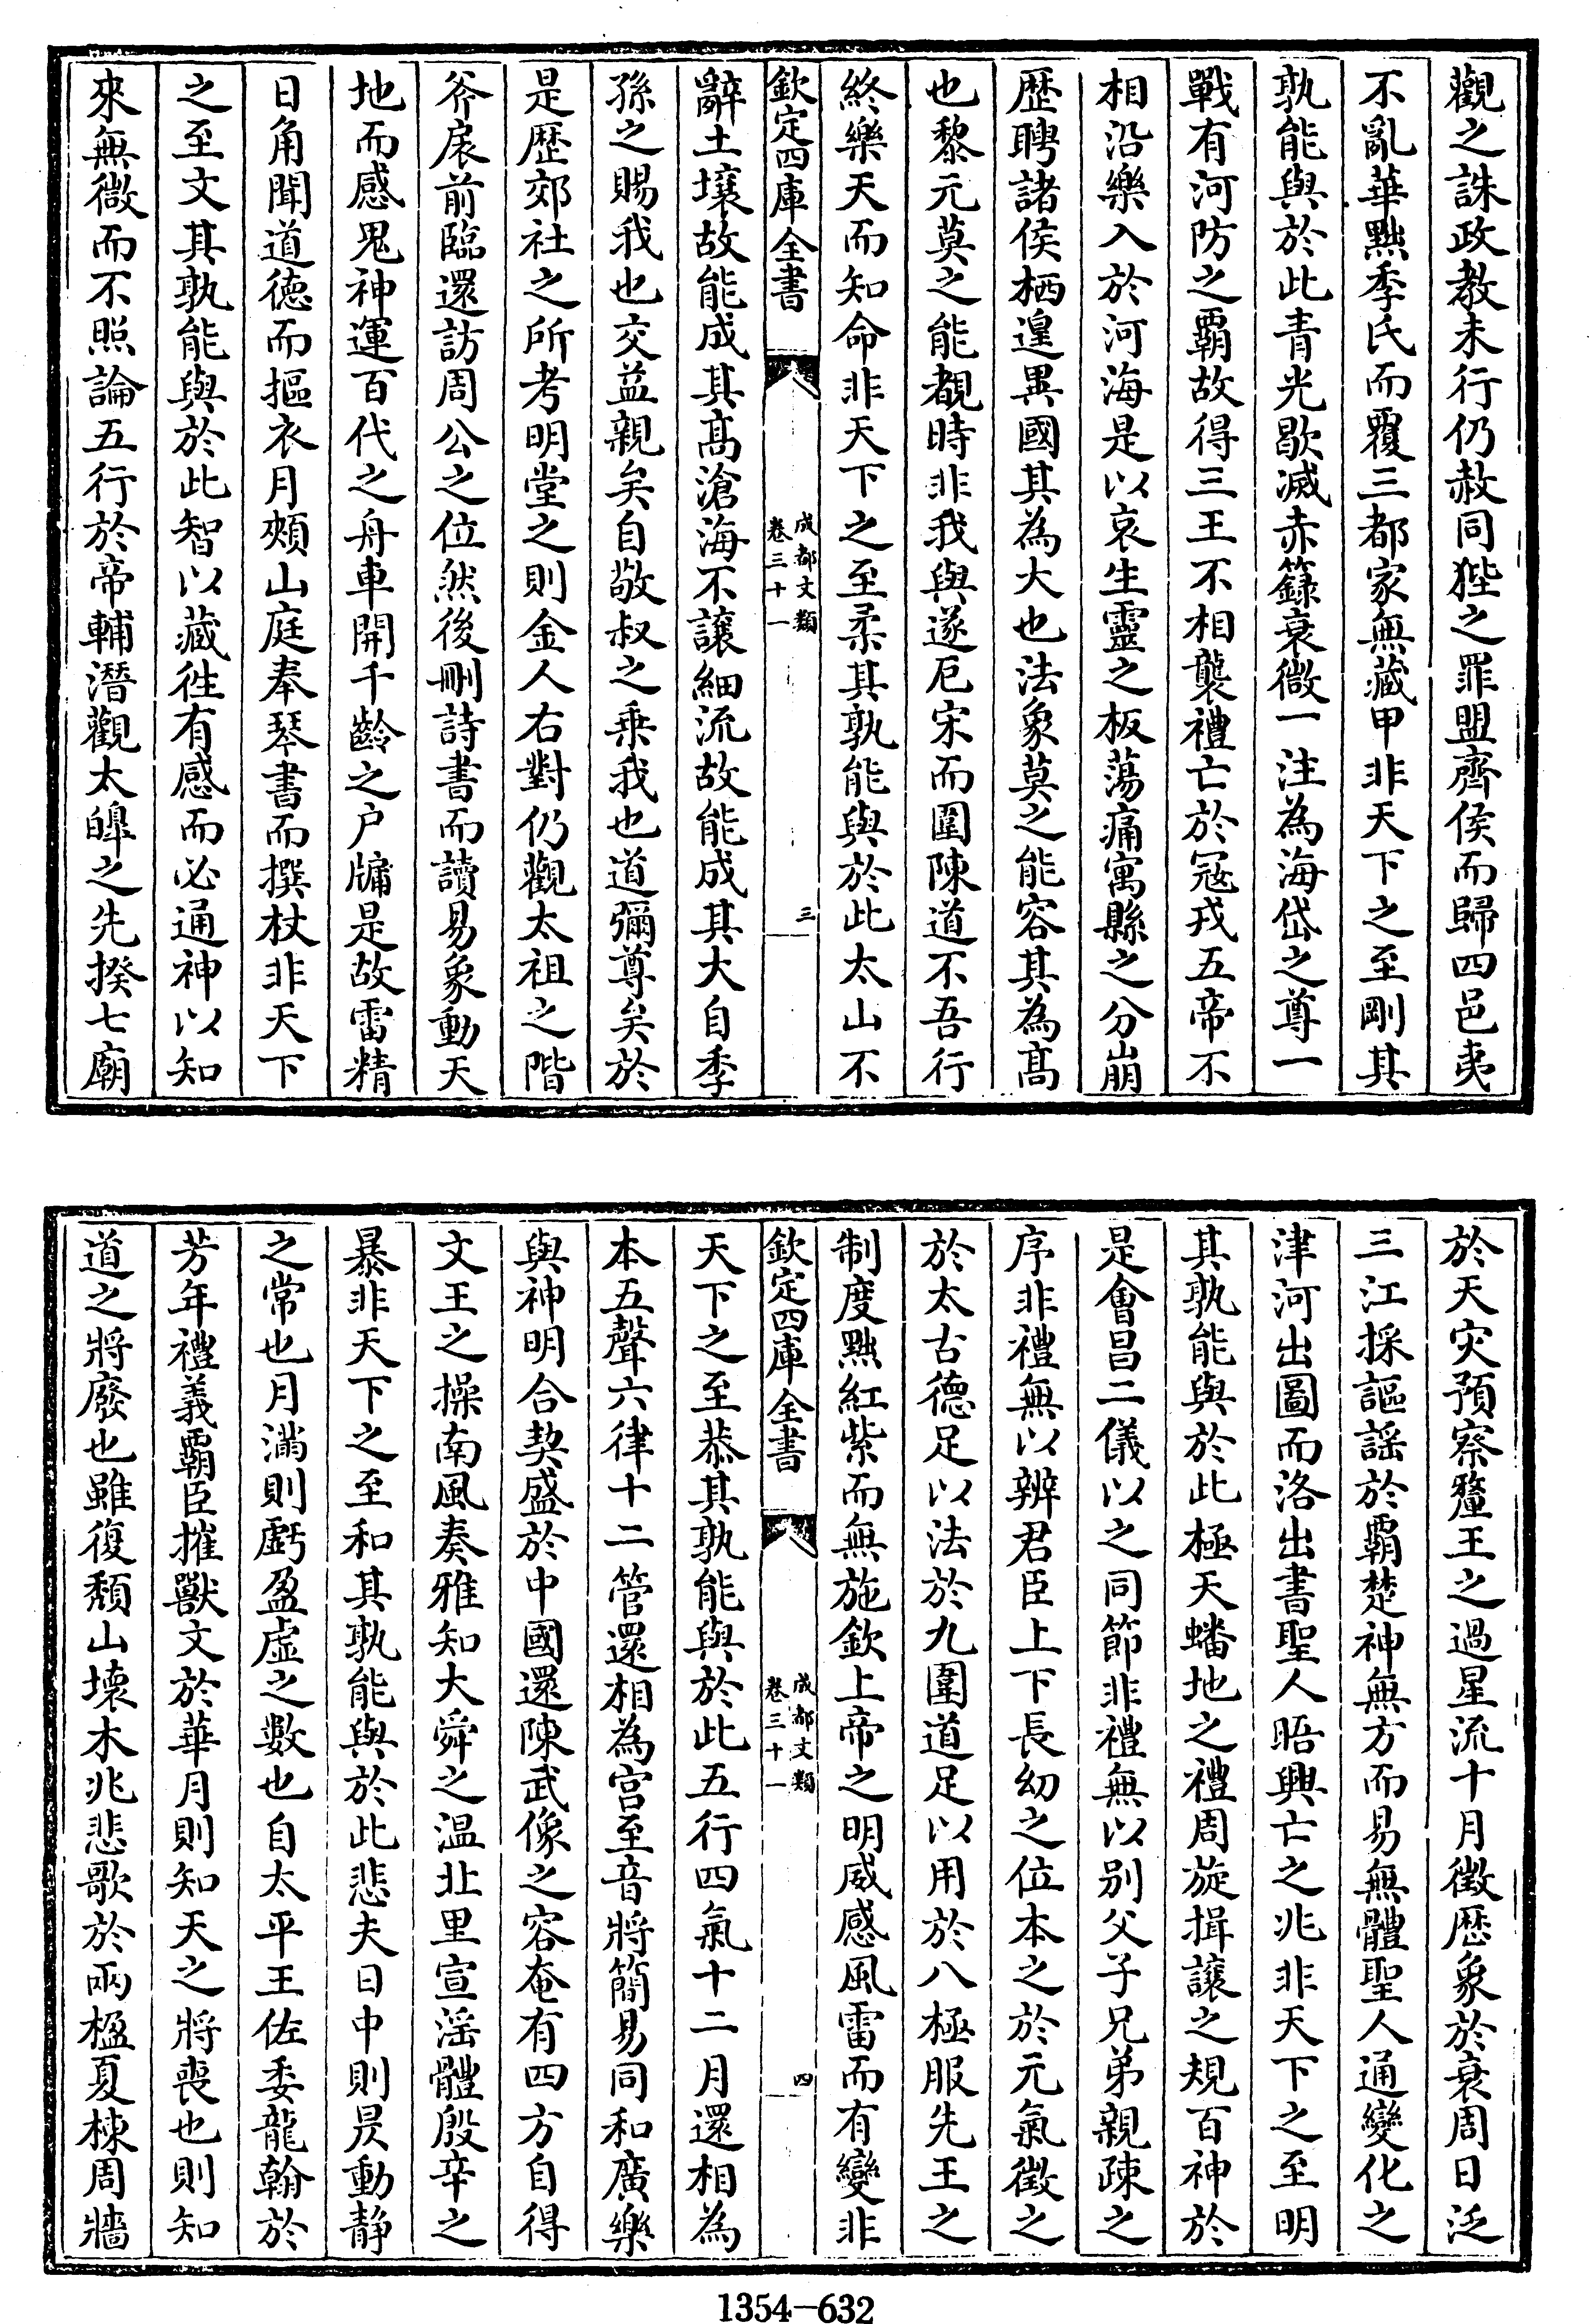 觀之誅政教未行仍赦同狴之罪盟齊侯而歸四邑夷
不亂華黜季氏而覆三都家無藏甲非天下之至剛其
孰能與於此青光歇滅赤籙衰微一注為海岱之尊一
戰有河防之覇故得三王不相襲禮亡於冦戎五帝不
相沿樂入於河海是以哀生靈之板蕩痛寓縣之分崩
歴聘諸侯栖遑異國其為大也法象莫之能容其為髙
也黎元莫之能覩時非我與遂厄宋而圍陳道不吾行
終樂天而知命非天下之至柔其孰能與於此太山不
欽定四庫全書
成都文類
卷三十一
三
辭土壤故能成其髙滄海不讓細流故能成其大自季
孫之賜我也交益親矣自敬叔之乗我也道彌尊矣於
是歴郊社之所考明堂之則金人右對仍觀太祖之階
斧扆前臨還訪周公之位然後刪詩書而讀易象動天
地而感鬼神運百代之舟車開千齡之户牖是故雷精
日角聞道徳而摳衣月頰山庭奉琴書而撰杖非天下
之至文其孰能與於此智以藏徃有感而必通神以知
來無微而不照論五行於帝輔潛觀太皥之先揆七廟
於天灾預察釐王之過星流十月徴歴象於衰周日泛
三江採謳謡於覇楚神無方而易無體聖人通變化之
津河出圖而洛出書聖人晤興亡之兆非天下之至明
其孰能與於此極天蟠地之禮周旋揖讓之規百神於
是會昌二儀以之同節非禮無以别父子兄弟親疎之
序非禮無以辨君臣上下長幼之位本之於元氣徴之
於太古德足以法於九圍道足以用於八極服先王之
制度黜紅紫而無施欽上帝之明威感風雷而有變非
欽定四庫全書
成都文類
卷三十一
四
天下之至恭其孰能與於此五行四氣十二月還相為
本五聲六律十二管還相為宫至音將簡易同和廣樂
與神明合契盛於中國還陳武像之容奄有四方自得
文王之操南風奏雅知大舜之温北里宣滛體殷辛之
暴非天下之至和其孰能與於此悲夫日中則昃動静
之常也月滿則虧盈虚之數也自太平王佐委龍翰於
芳年禮義覇臣摧獸文於華月則知天之將喪也則知
道之將廢也雖復頽山壊木兆悲歌於兩楹夏棟周牆
1354—632